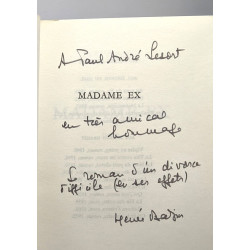 A Paul André Lesort
MADAME EX
en très amical
hommage
Le roman d'un divorce
difficile (en ses effets)
Hervé Bazin